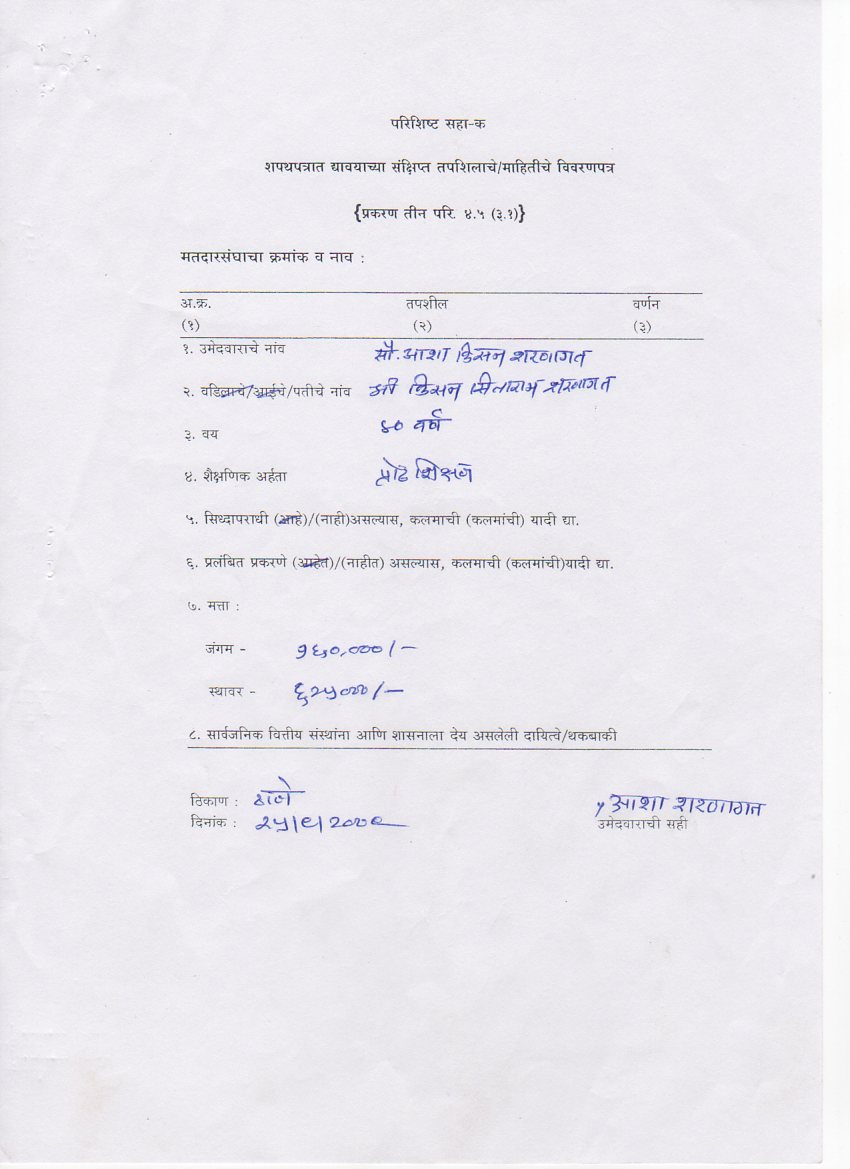 परिशिष्ट सहा-क
शपथपत्रात द्यावयाच्या संक्षिप्त तपशिलाचे/माहितीचे विवरणपत्र
{प्रकरण तीन परि. ४.५ (३.१)}
मतदारसंघाचा क्रमांक व नाव :
अ.क्र. तपशील वर्णन
(१) (२) (३)
१. उमेदवाराचे नांव सौ. आशा किसन शरणागत
२. वडिलाचे/आईचे/पतीचे नांव श्री किसन सिताराम शरणागत
३. वय ४० वर्ष
४. शैक्षणिक अर्हता प्रोढ शिक्षण
५. सिध्दापराधी (आहे)/(नाही)असल्यास, कलमाची (कलमांची) यादी द्या.
६. प्रलंबित प्रकरणे (आहेत)/(नाहीत) असल्यास, कलमाची (कलमांची)यादी द्या.
७. मत्ता :
जंगम - १६०,०००/-
स्थावर - ६२५०००/-
८. सार्वजनिक वित्तीय संस्थांना आणि शासनाला देय असलेली दायित्वे/थकबाकी
ठिकाण : ठाणे
आशा शरणागत
दिनांक : २५/९/२००९
उमेदवाराची सही